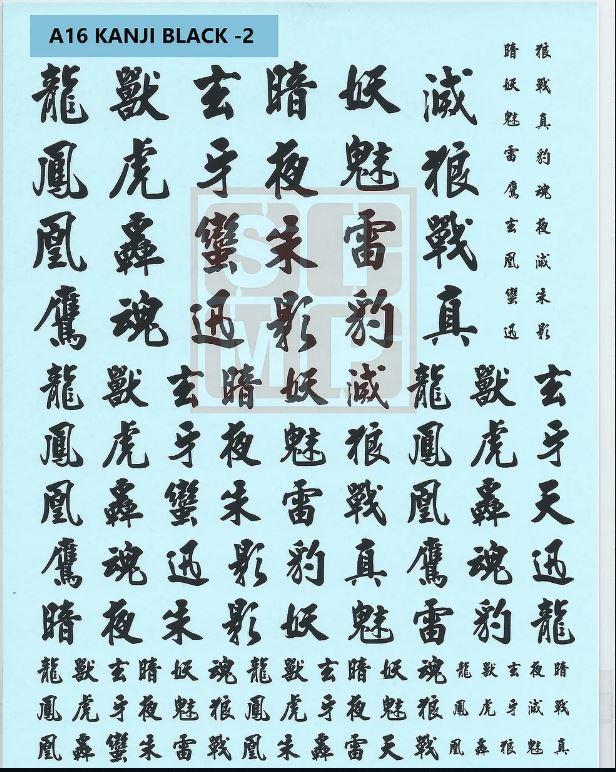 A16 KANJI BLACK -2
龍 獸 玄 暗 妖 滅
鳳 虎 牙 夜 魅 狼
凰 轟 蠻 朱 雷 戰
鷹 魂 迅 影 豹 真
暗 狼
妖 戰
魅 真
雷 豹
鷹 魂
玄 夜
凰 滅
蠻 朱
迅 影
SC
MP
龍 獸 玄 暗 妖 滅 龍 獸 玄
鳳 虎 牙 夜 魅 狼 鳳 虎 牙
凰 轟 蠻 朱 雷 戰 凰 轟 天
鷹 魂 迅 影 豹 真 鷹 魂 迅
暗 夜 朱 影 妖 魅 雷 豹 龍
龍 獸 玄 暗 妖 魂 龍 獸 玄 暗 妖 魂 龍 獸 玄 夜 暗
鳳 虎 牙 夜 魅 狼 鳳 虎 牙 夜 魅 狼 鳳 虎 牙 滅 戰
凰 轟 蠻 朱 雷 戰 凰 朱 轟 雷 天 戰 凰 轟 狼 魅 真